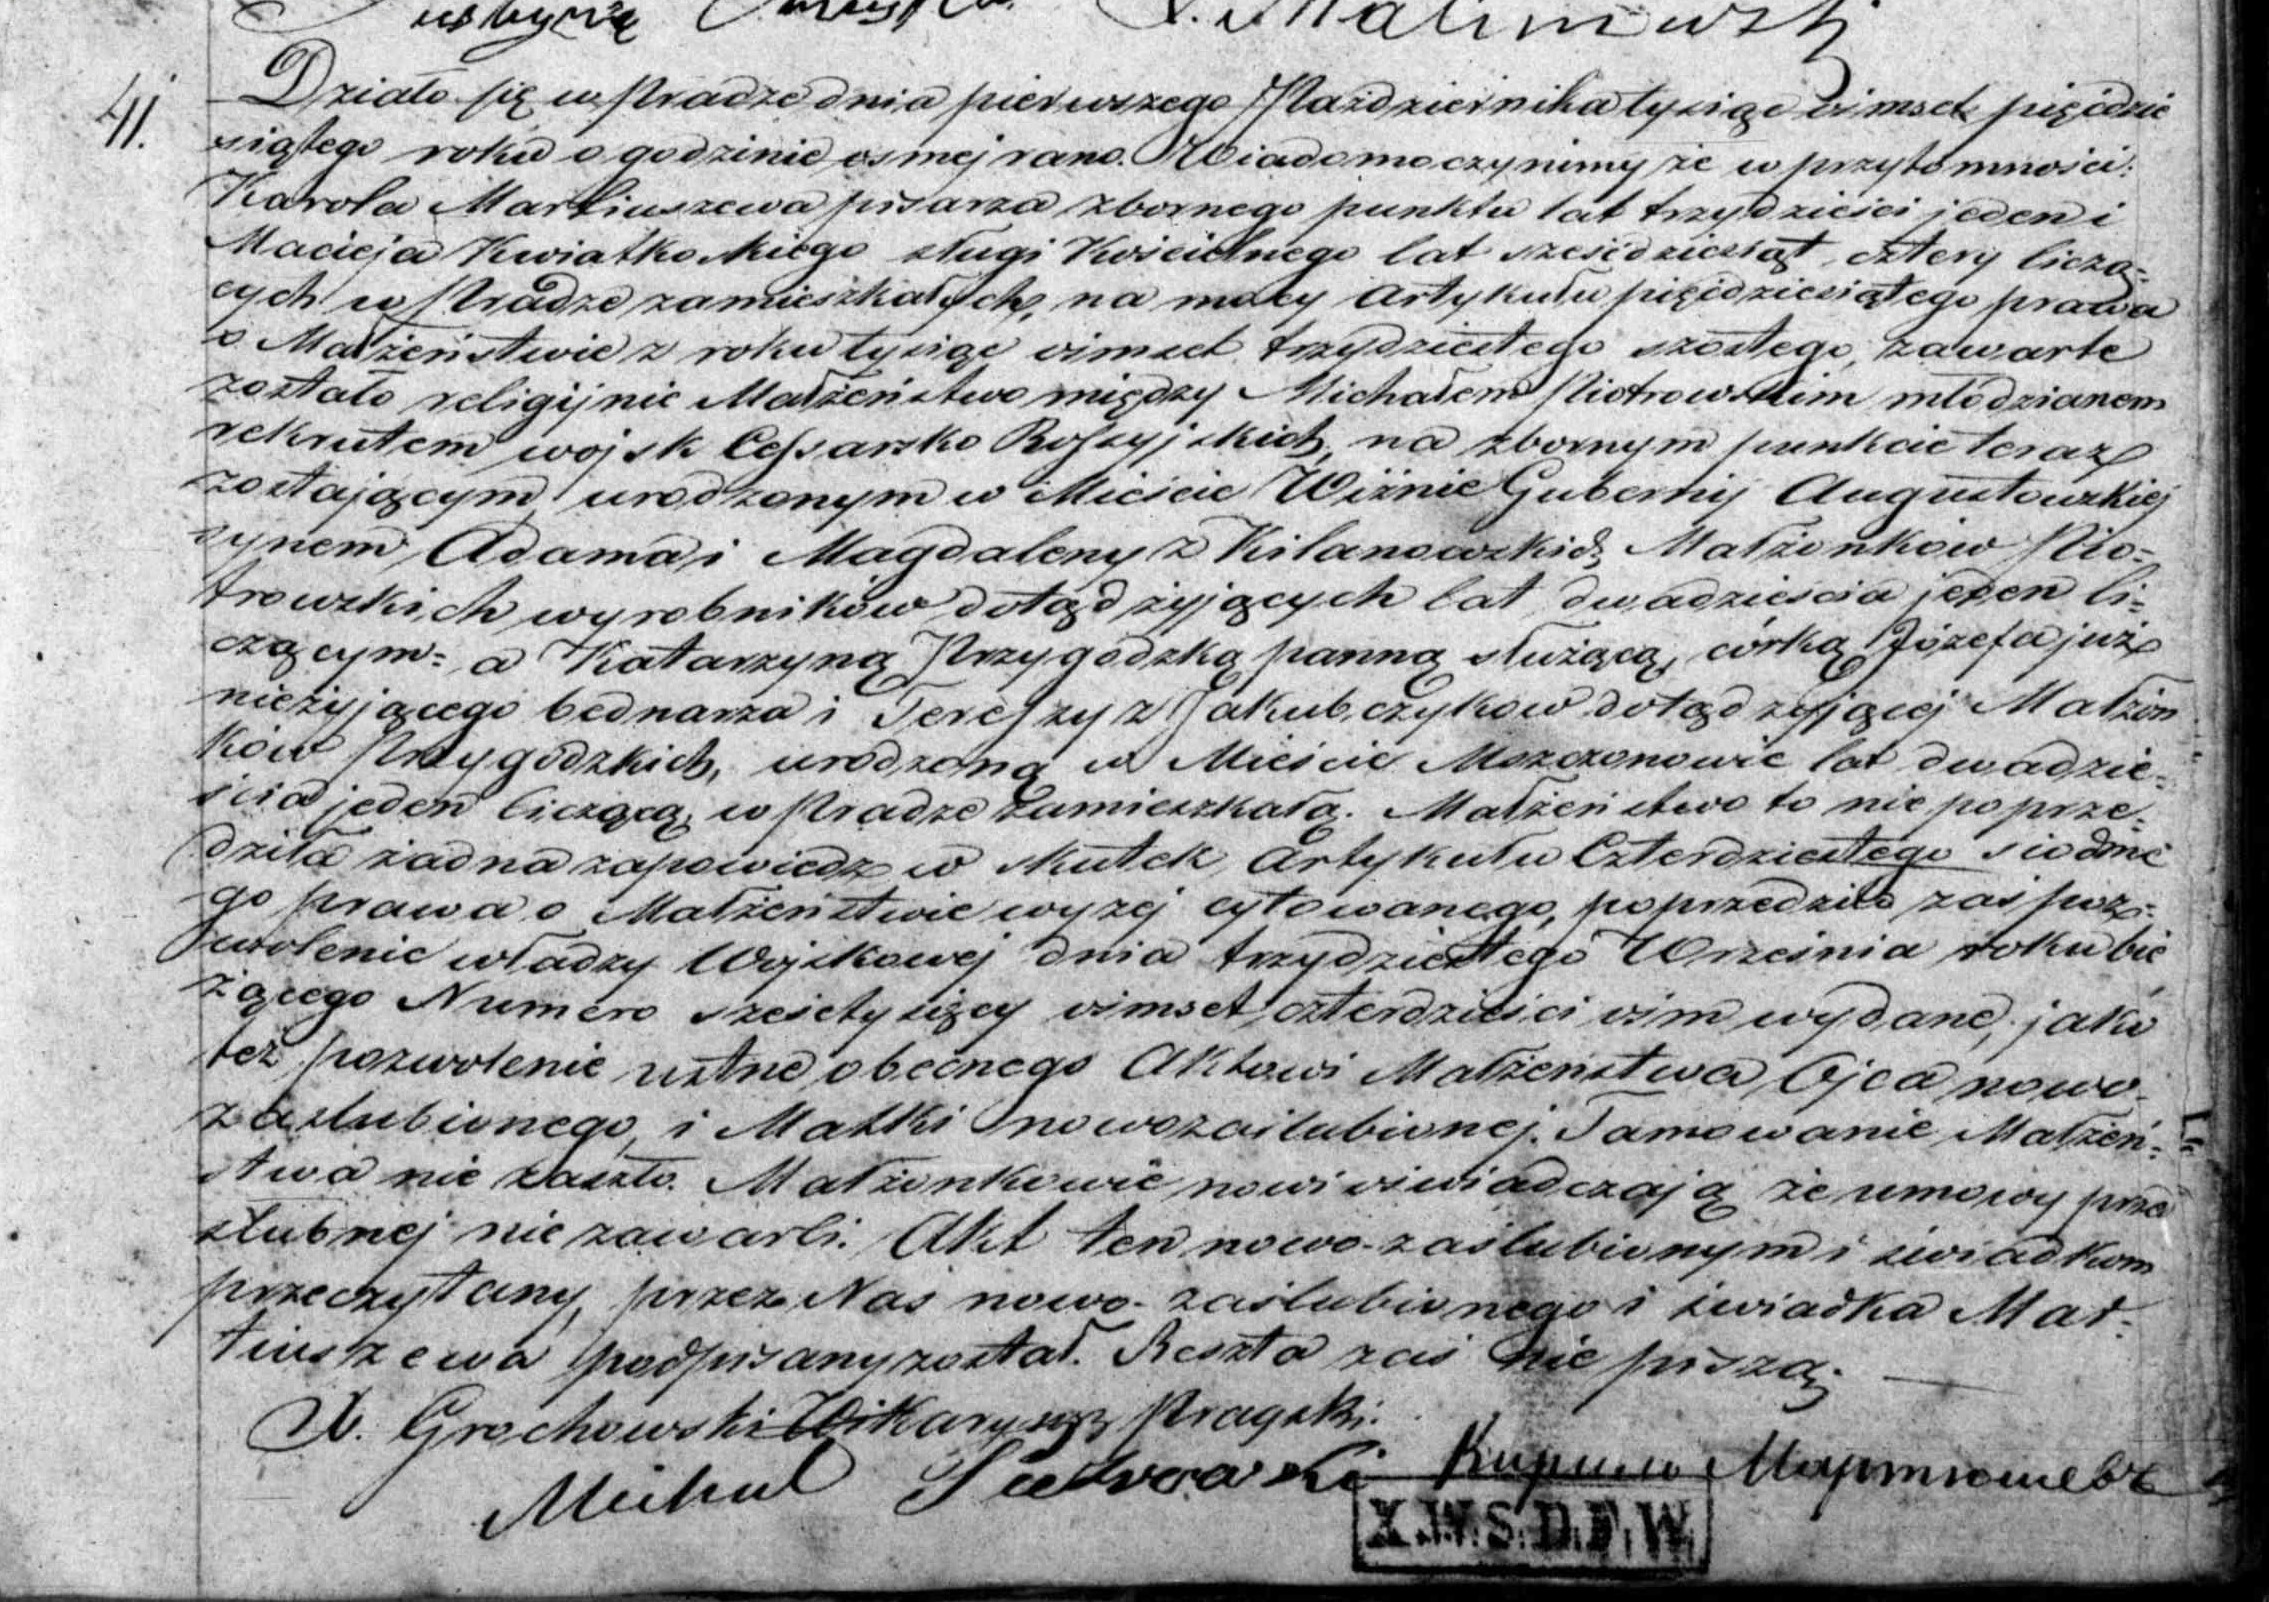 Malinowski
41.
Działo się w Pradze dnia pierwszego Października tysiąc ośmset pięćdzie
siątego roku o godzinie osmej rano. Wiadomo czynimy że w przytomności:
Karola Martiuszewa pisarza zbornego punktu lat trzydzieści jeden i
Macieja Kwiatkoskiego sługi Kościelnego lat sześćdziesiąt cztery licza-
cych w Pradze zamieszkałych, na mocy Artykułu pięćdziesiątego prawa
o Małżeństwie z roku tysiąc ośmset trzydziestego szostego, zawarte
zostało religijnie Małżeństwo między Michałem Piotrowskim młodzianem
rekrutem wojsk Cessarsko Rossyjskich, na zbornym punkcie teraz
zostającym urodzonym w Mieście Wiźnie Gubernij Augustowzkiej
synem Adama i Magdaleny z Kilanowzkich Małżonków Pio-
trowzkich wyrobników dotąd żyjących lat dwadzieścia jeden li-
czącym= a Katarzyną Przygodzką panną służącą, córką Józefa już
nieżyjącego bednarza i Teressy z Jakubczyków dotąd żyjącej Małżon
ków Przygodzkich, urodzoną w Mieście Mszczonowie lat dwadzie-
ścia jeden liczącą, w Pradze zamieszkałą. Małżeństwo to nie poprze-
dziła żadna zapowiedz w skutek Artykułu Czterdziestego siodme
go prawa o Małżeństwie wyżej cytowanego, poprzedziło zaś poz-
wolenie władzy Wojskowej dnia trzydziestego Września roku bie
żącego Numero sześć tysięcy ośmset czterdzieści ośm wydane, jako
też pozwolenie ustne obecnego Aktowi Małżeństwa Ojca nowo-
zaślubionego, i Matki nowozaślubionej. Tamowanie Małżeń-
stwa nie zaszło. Małżonkowie nowi oświadczają że umowy prze
ślubnej nie zawarli. Akt ten nowo-zaślubionym i świadkom
przeczytany, przez Nas nowo-zaślubionego i świadka Mar-
tiuszewa podpisany został. Reszta zaś nie piszą.
X. Grochowski Wikaryusz Pragski.
Michał Piotrowski Мартюшевъ
X.W.S.D.P.W.